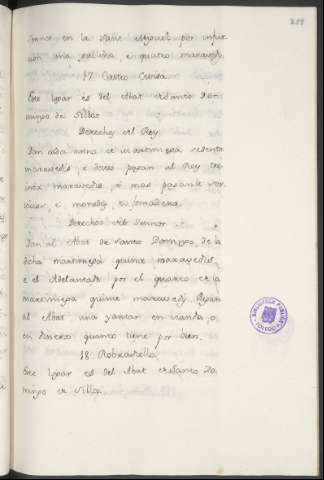 259
dance en la Sant Miguel por infur
cion una gallina, e quatro maravedis.
17. Castro Ceniza.
Este logar es del Abat de Santo Do-
mingo de Silos.
Derechos del Rey.
Dan cada anno de martiniega sesenta
maravedis, e destos pagan al Rey
maravedis, e mas paganle ser-
vicios, e monedas, en fonsadera.
Derechos del Sennor
Dan al Abat de Santo Domingo, de la
dicha martiniega quince maravedis,
e el Adelantado por el quarto de la
martiniega quince maravedis. E dan
al Abat una yantar en vianda, o
en dineros quanto tiene por bien.
18. Rebredillo
Este logar es del Abat de Santo Do
mingo de Silos.
BIBLIOTECA PUBLICA
TOLEDO